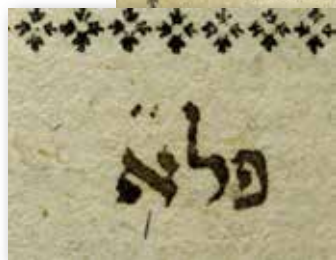 פלא